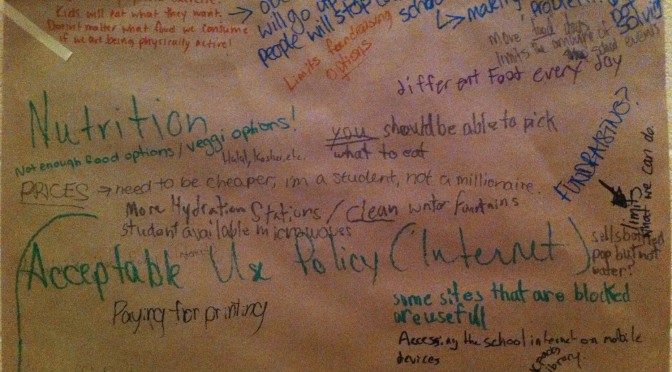 Kids will eat what they want.
Doesn't matter what food we consume
if we are not being physically active!
will go up
people will stop
Limits fundraising
options
making
problem
not
solving
More food days
limits the amount of
different Food every day
Nutrition
Not enough food options/veggi options!
Halal, Kosher, etc.
you should be able to pick
what to eat
FUNDRAISING?
limits
what we can do.
PRICES → need to be cheaper, i'm a student, not a millionaire.
More Hydration Stations / Clean water fountains
student available microwaves
Acceptable Use Policy (Internet)
sells bottled
pop but not
water?
Paying for printing
some sites that are blocked
are usefull
Accessing the school internet on mobile
devices
library.